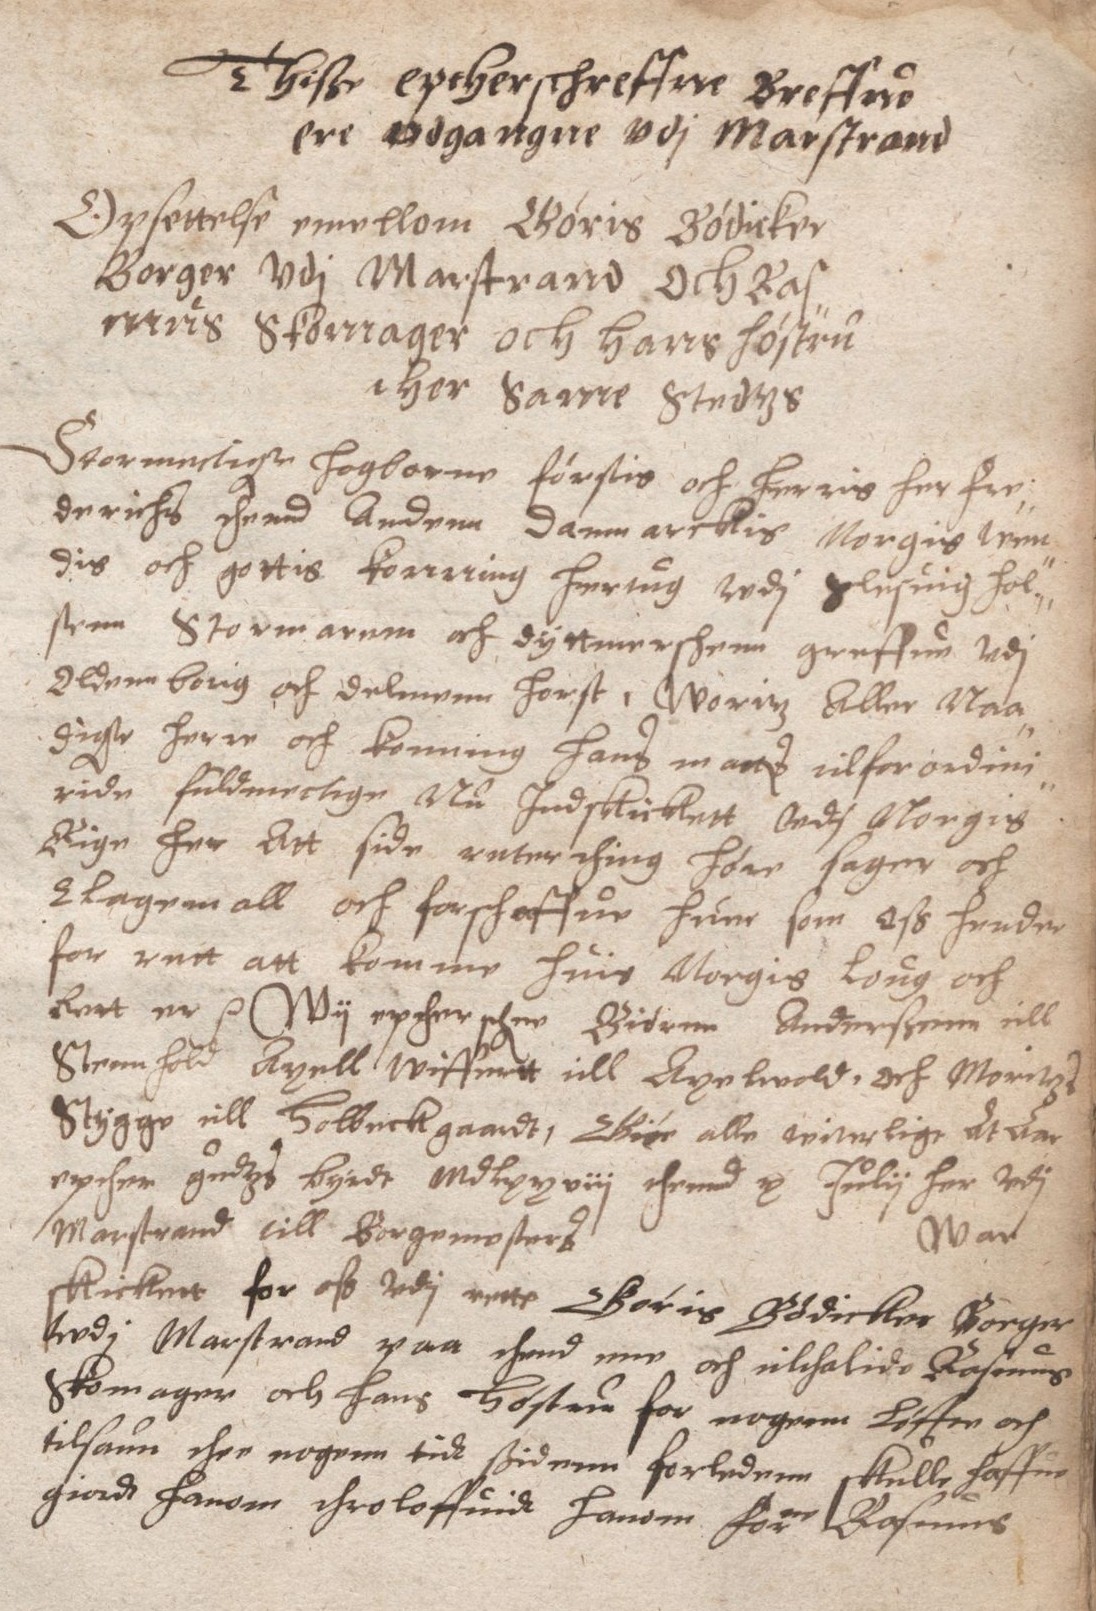 Thisse eptherschreffne Breffue
ere vdgangne vdj Marstrand
Opsettelse emellom Gøris Bødicker
Borger vdj Marstrand Och Ras„
muus Skomager och hans høstru
ther Samme Stedtzs
Stormectigste høgborne førstis och herris her fre„
derichs thend Andenn Danmarckis Norgis Wen„
dis och gottis konning hertug wdj Slesuig hol„
stenn Stormarenn och dyttmerschenn greffue vdj
Oldennborig och delmenn horst, Woritz Aller Naa„
digste herre och konning hans matts tilforordini„
ride fuldmectige Nu Indskickett wdj Norgis
Rige her Att side retterthing høre sager och
Klagemall och forschaffue huer som Oss hender
for rett att komme huis Norgis Loug och
Rett er Wij epther schne Biørnn Anderssenn till
Steenhold Axell Wiffertt till Axelwold, och Moritzs
Stygge till Holbeckgaardt, Giøre alle witerlige At Aar
epther gudtzs byrdt Mdlxxviij thennd x Julij her vdj
Marstrand till Borgemesters War
skickett for oss vdij rette Gøris Bødicker Borger
wdj Marstrand paa thend ene och tilthalide Rasmus
Skomager och hans Høstru for nogenn Løffte och
tilsaun the nogenn tidt ssidenn forledenn skulle haffue
giordt hanom throloffuidt hanom forne Rasmus